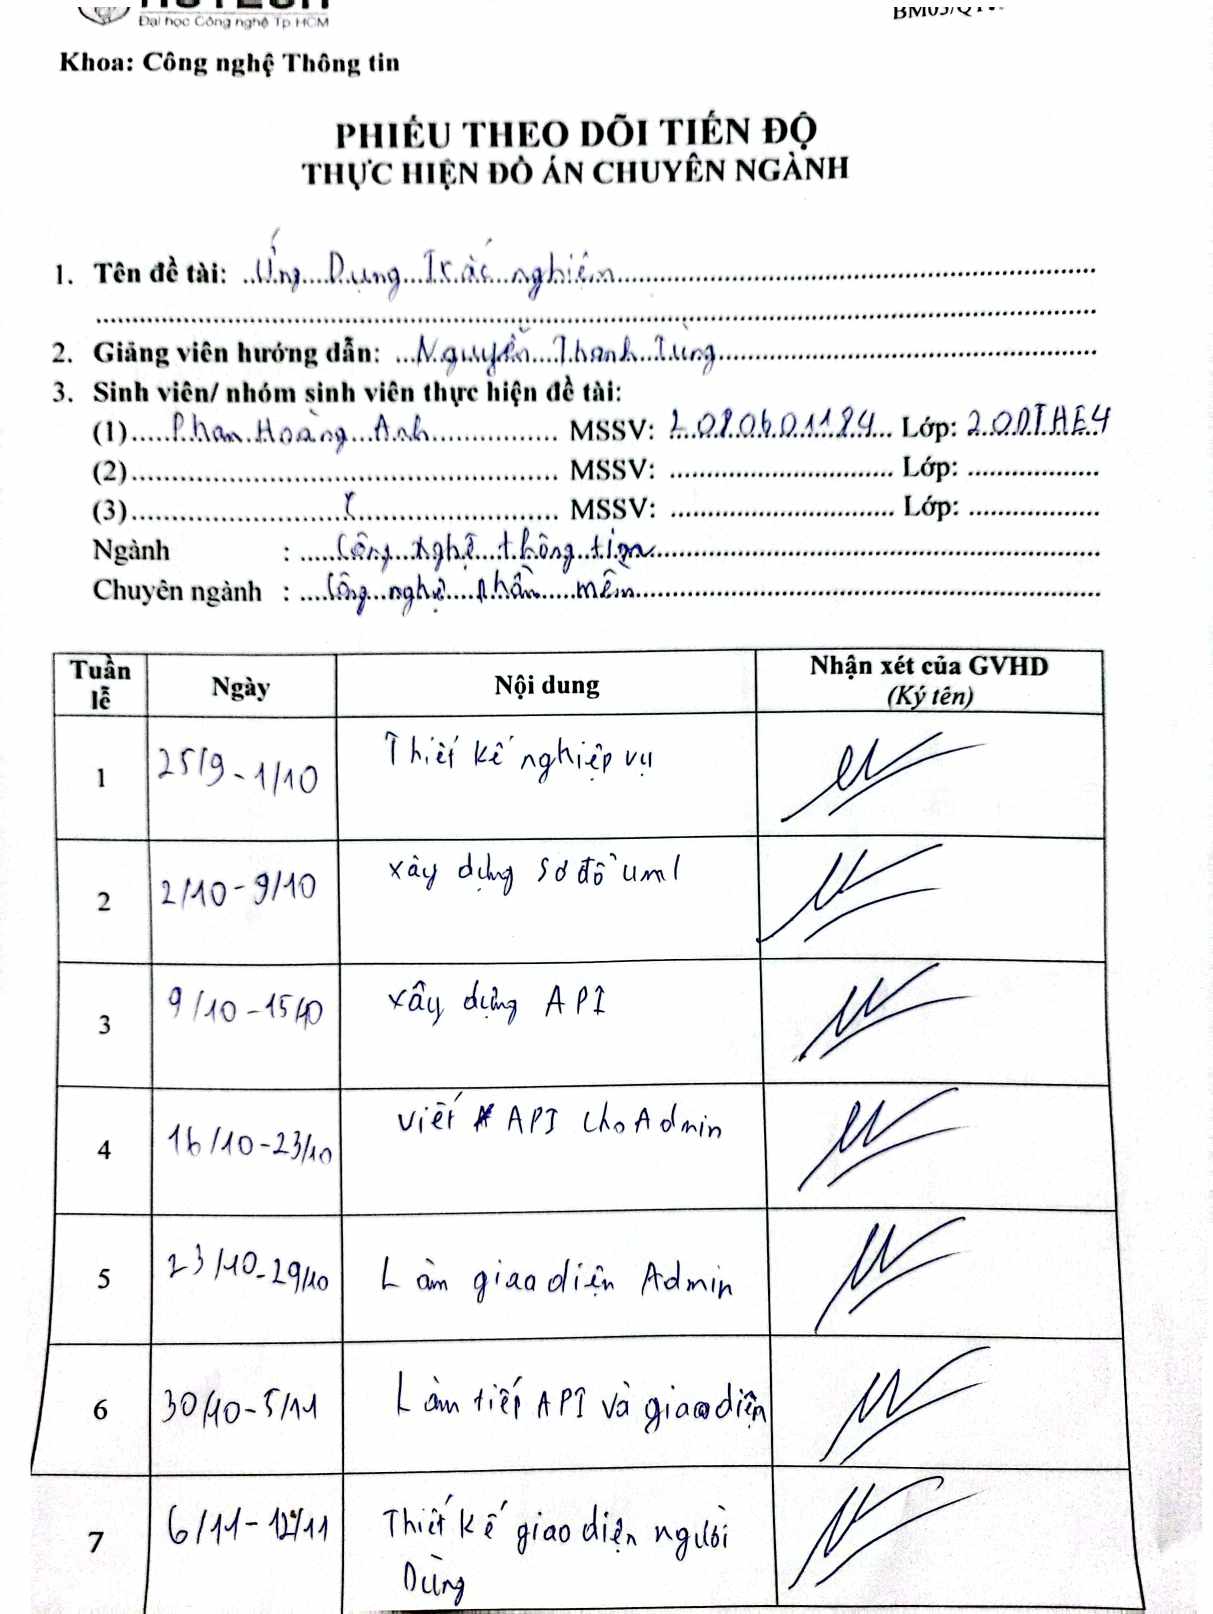 HUTECH
Đại học Công nghệ Tp HCM
Khoa: Công nghệ Thông tin
PHIẾU THEO DÕI TIẾN ĐỘ
THỰC HIỆN ĐỒ ÁN CHUYÊN NGÀNH
1. Tên đề tài: Ứng Dụng Trắc nghiệm
2. Giảng viên hướng dẫn: Nguyễn Thanh Tùng
3. Sinh viên/ nhóm sinh viên thực hiện đề tài:
(1) Phan Hoàng Anh MSSV: 2080601184 Lớp: 20DTHE4
(2) MSSV: Lớp:
(3) MSSV: Lớp:
Ngành : Công nghệ thông tin
Chuyên ngành : Công nghệ phần mềm
Tuần lễ Ngày Nội dung Nhận xét của GVHD
(Ký tên)
1 25/9 - 1/10 Thiết kế nghiệp vụ
2 2/10 - 9/10 xây dựng sơ đồ uml
3 9/10 - 15/10 xây dựng API
4 16/10 - 23/10 viết API cho Admin
5 23/10 - 29/10 Làm giao diện Admin
6 30/10 - 5/11 Làm tiếp API và giao diện
7 6/11 - 12/11 Thiết kế giao diện người
Dùng